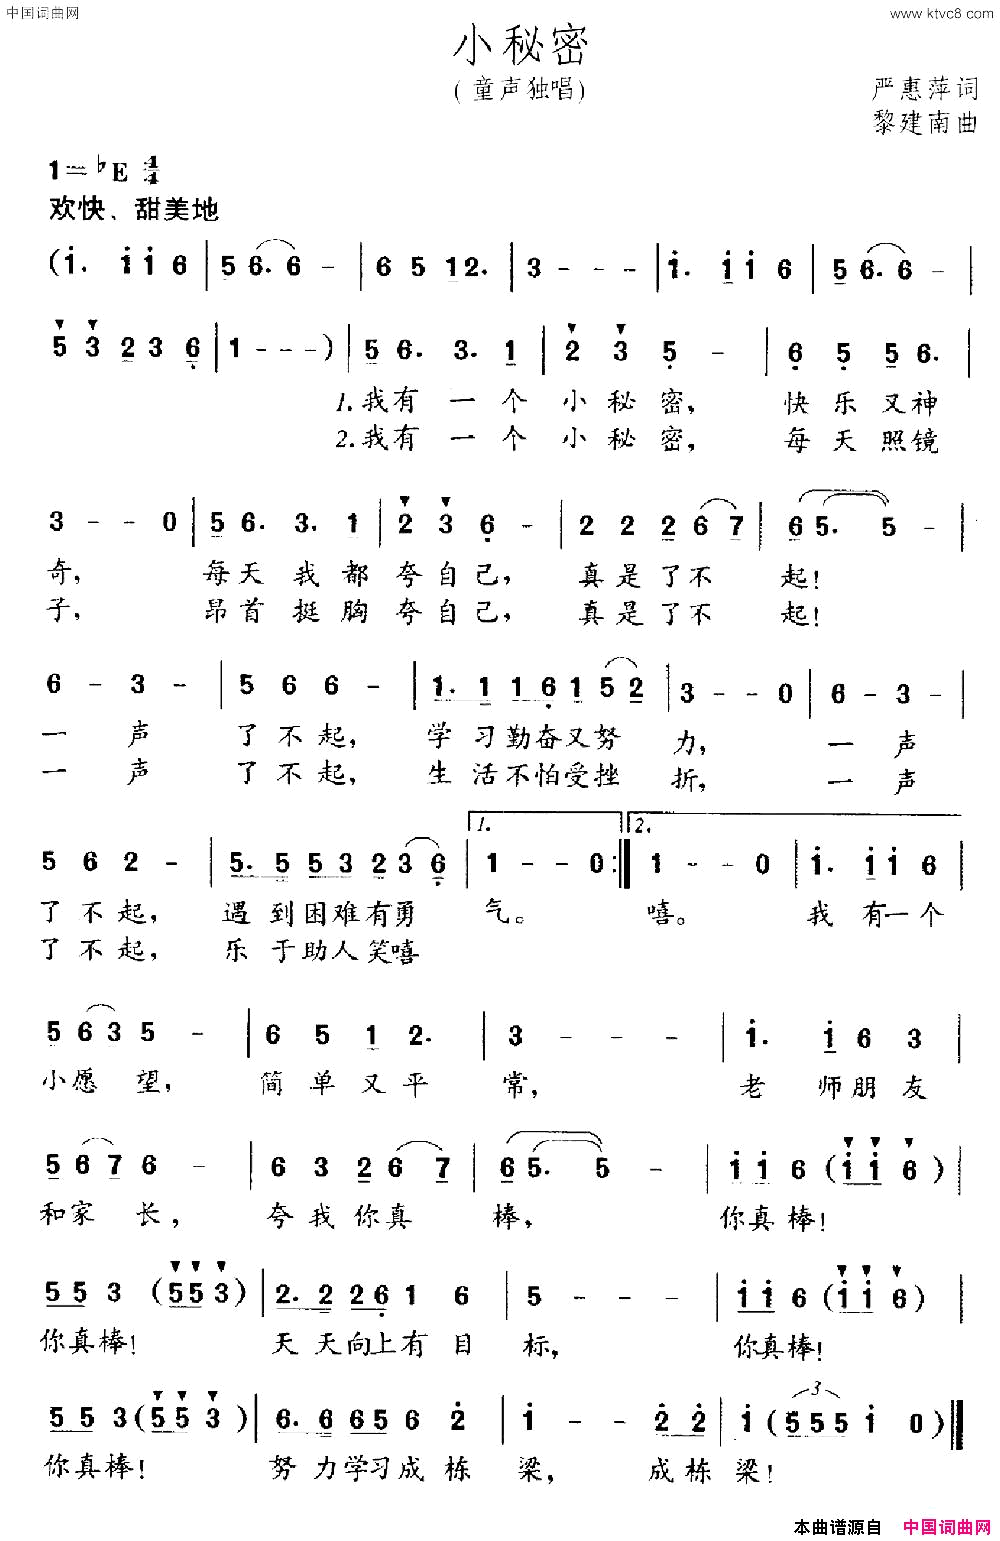 中国词曲网
www.ktvc8.com
小秘密
(童声独唱)
严惠萍词
黎建南曲
1=♭E 4/4
欢快、甜美地
(i. i i 6 | 5 6. 6 - | 6 5 1 2. | 3 - - - | i. i i 6 | 5 6. 6 - |
5 3 2 3 6 | 1 - - - ) | 5 6. 3. 1 | 2 3 5 - | 6 5 5 6. |
1.我有 一个 小秘密, 快乐又神
2.我有 一个 小秘密, 每天照镜
3 - - 0 | 5 6. 3. 1 | 2 3 6 - | 2 2 2 6 7 | 6 5. 5 - |
奇, 每天我都夸自己, 真是了不 起!
子, 昂首挺胸夸自己, 真是了不 起!
6 - 3 - | 5 6 6 - | 1. 1 1 6 1 5 2 | 3 - - 0 | 6 - 3 - |
一 声 了不起, 学习勤奋又努 力, 一声
一 声 了不起, 生活不怕受挫 折, 一声
1. 2.
5 6 2 - | 5. 5 5 3 2 3 6 | 1 - - 0 :| 1 - - 0 | i. i i 6 |
了不起, 遇到困难有勇 气。 嘻。 我有一个
了不起, 乐于助人笑嘻
5 6 3 5 - | 6 5 1 2. | 3 - - - | i. i 6 3 |
小愿望, 简单又平 常, 老师朋友
5 6 7 6 - | 6 3 2 6 7 | 6 5. 5 - | i i 6 (i i 6) |
和家长, 夸我你真 棒, 你真棒!
5 5 3 (5 5 3) | 2. 2 2 6 1 6 | 5 - - - | i i 6 (i i 6) |
你真棒! 天天向上有目 标, 你真棒!
3
5 5 3 (5 5 3) | 6. 6 6 5 6 2 | i - - 2 2 | i (5 5 5 i 0) |
你真棒! 努力学习成栋 梁, 成栋梁!
本曲谱源自 中国词曲网